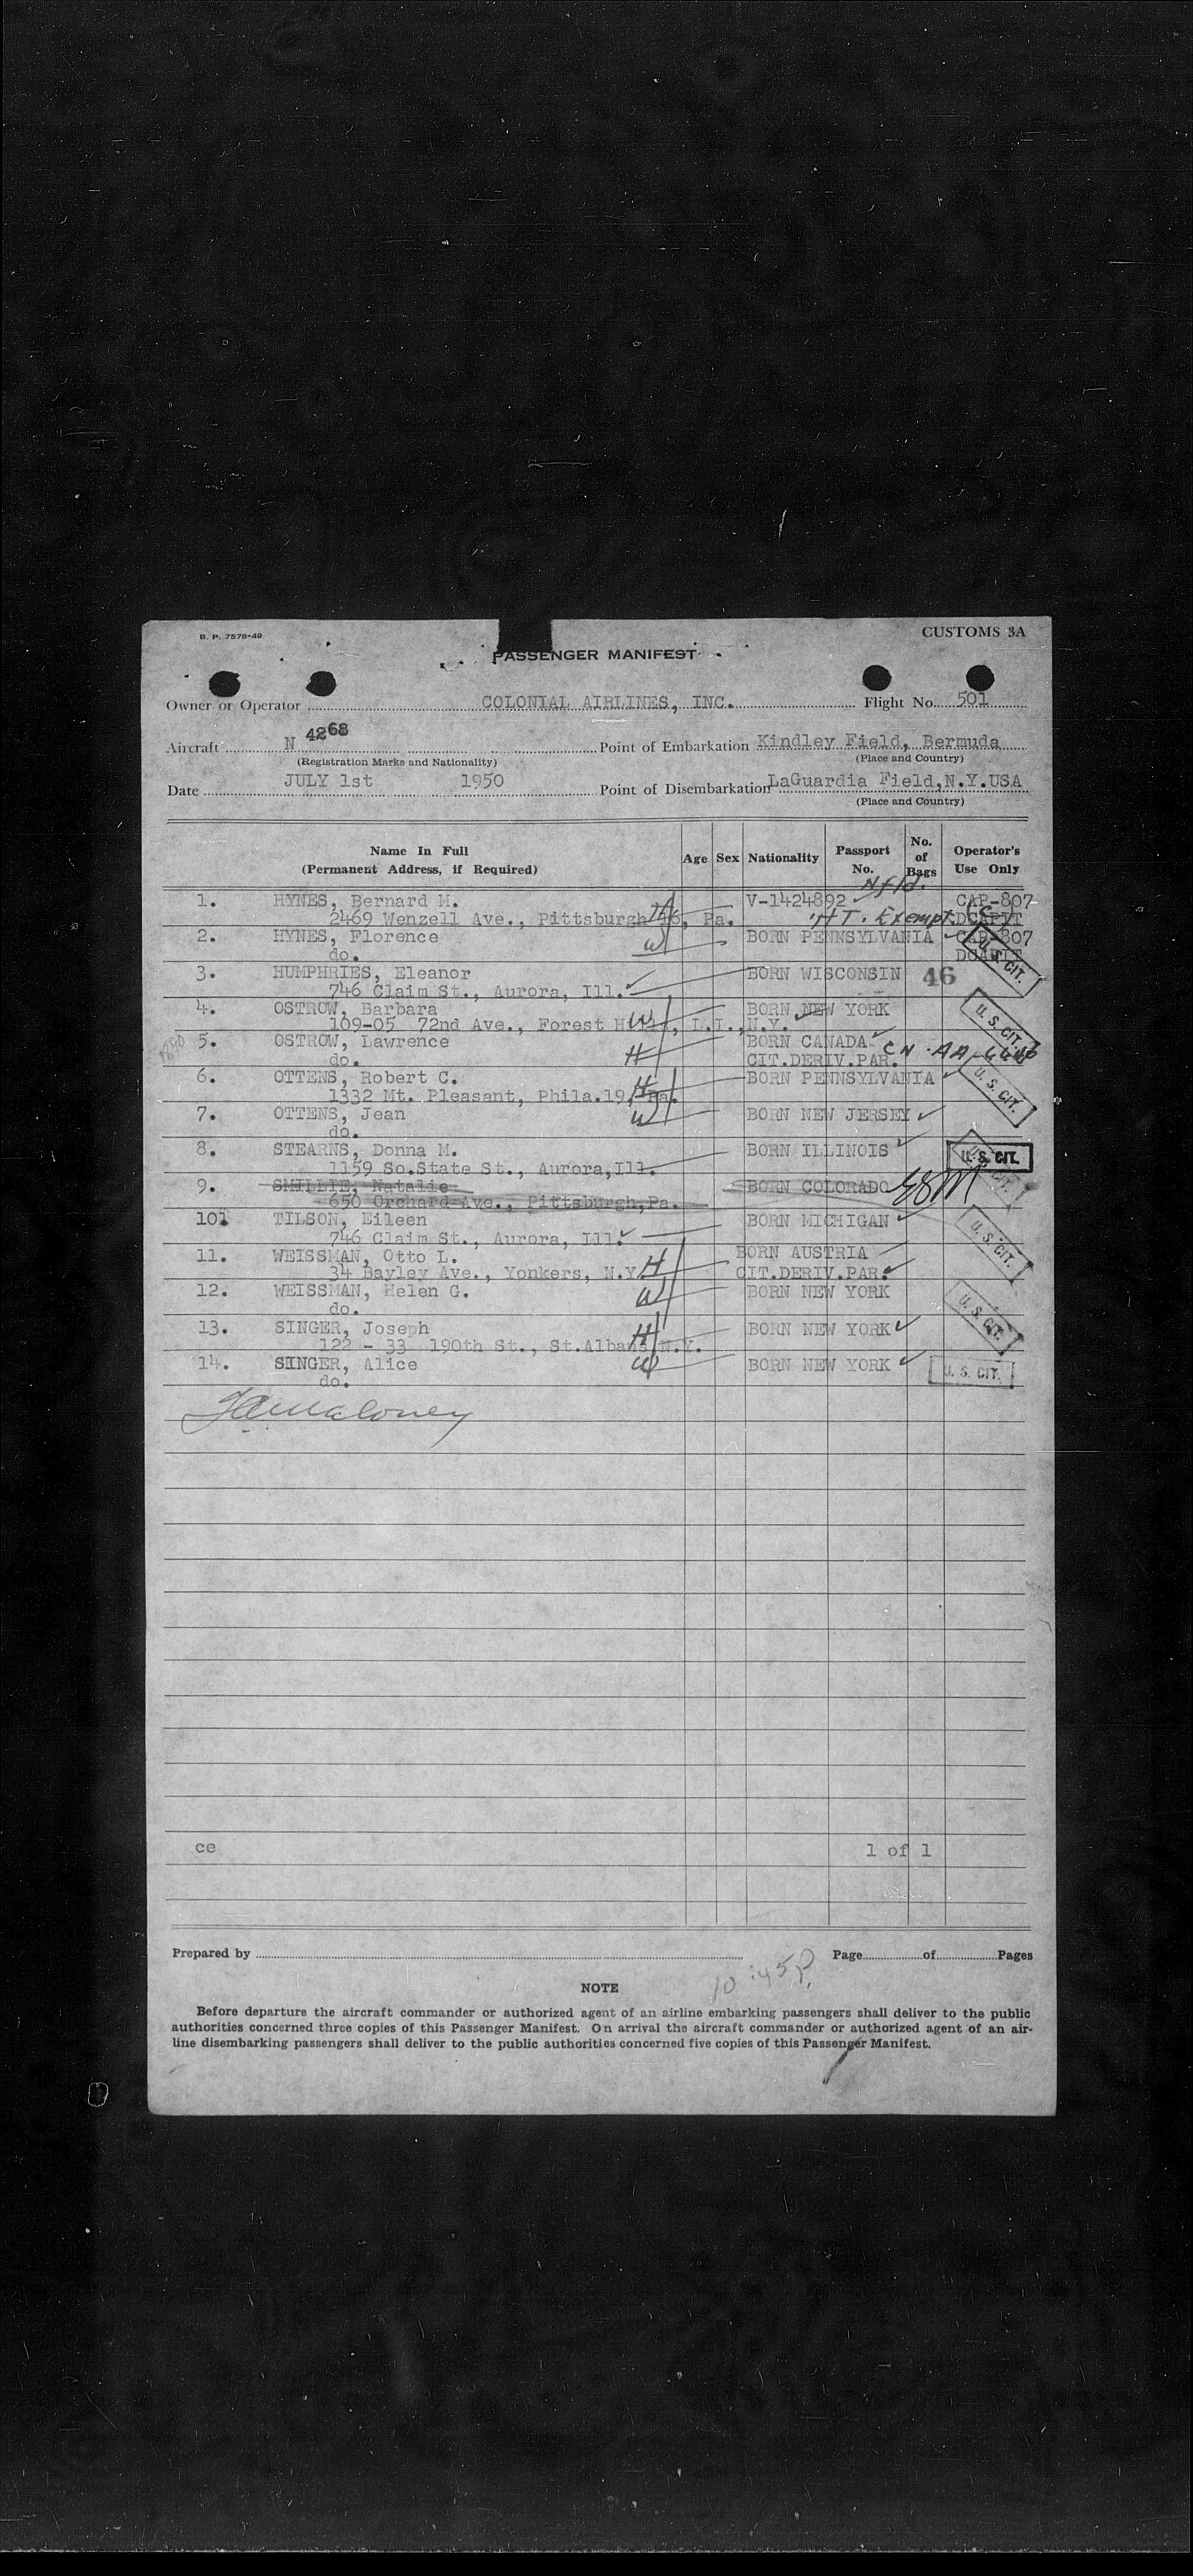 B. P. 7578-49
CUSTOMS 3A
PASSENGER MANIFEST
Owner or Operator COLONIAL AIRLINES, INC. Flight No. 501
Aircraft N 4268 Point of Embarkation Kindley Field, Bermuda
(Registration Marks and Nationality) (Place and Country)
Date JULY 1st 1950 Point of Disembarkation LaGuardia Field,N.Y.USA
(Place and Country)
Name In Full Age Sex Nationality Passport No. of Operator's
(Permanent Address, if Required) No. Bags Use Only
Nfld.
1. HYNES, Bernard M. V-1424892 CAP-807
2469 Wenzell Ave., Pittsburgh 16, Pa. H HT. Exempt DCAPIT
2. HYNES, Florence W BORN PENNSYLVANIA CAP-807
do. DCAPIT U. S. CIT.
3. HUMPHRIES, Eleanor BORN WISCONSIN 46
746 Claim St., Aurora, Ill.
4. OSTROW, Barbara W BORN NEW YORK U. S. CIT.
109-05 72nd Ave., Forest Hills, L.I.,N.Y.
5. OSTROW, Lawrence H BORN CANADA CN
do. CIT.DERIV.PAR.
6. OTTENS, Robert C. H BORN PENNSYLVANIA U. S. CIT.
1332 Mt. Pleasant, Phila.19, Pa.
7. OTTENS, Jean W BORN NEW JERSEY
do.
8. STEARNS, Donna M. BORN ILLINOIS U. S. CIT.
1159 So.State St., Aurora,Ill.
9. SMILLIE, Natalie BORN COLORADO
650 Orchard Ave., Pittsburgh,Pa.
101 TILSON, Eileen BORN MICHIGAN U. S. CIT.
746 Claim St., Aurora, Ill.
11. WEISSMAN, Otto L. H BORN AUSTRIA
34 Bayley Ave., Yonkers, N.Y. CIT.DERIV.PAR.
12. WEISSMAN, Helen G. W BORN NEW YORK U. S. CIT.
do.
13. SINGER, Joseph H BORN NEW YORK
122 - 33 190th St., St.Albans N.Y.
14. SINGER, Alice W BORN NEW YORK U. S. CIT.
do.
ce 1 of 1
Prepared by Page of Pages
10:45P.
NOTE
Before departure the aircraft commander or authorized agent of an airline embarking passengers shall deliver to the public
authorities concerned three copies of this Passenger Manifest. On arrival the aircraft commander or authorized agent of an air-
line disembarking passengers shall deliver to the public authorities concerned five copies of this Passenger Manifest.